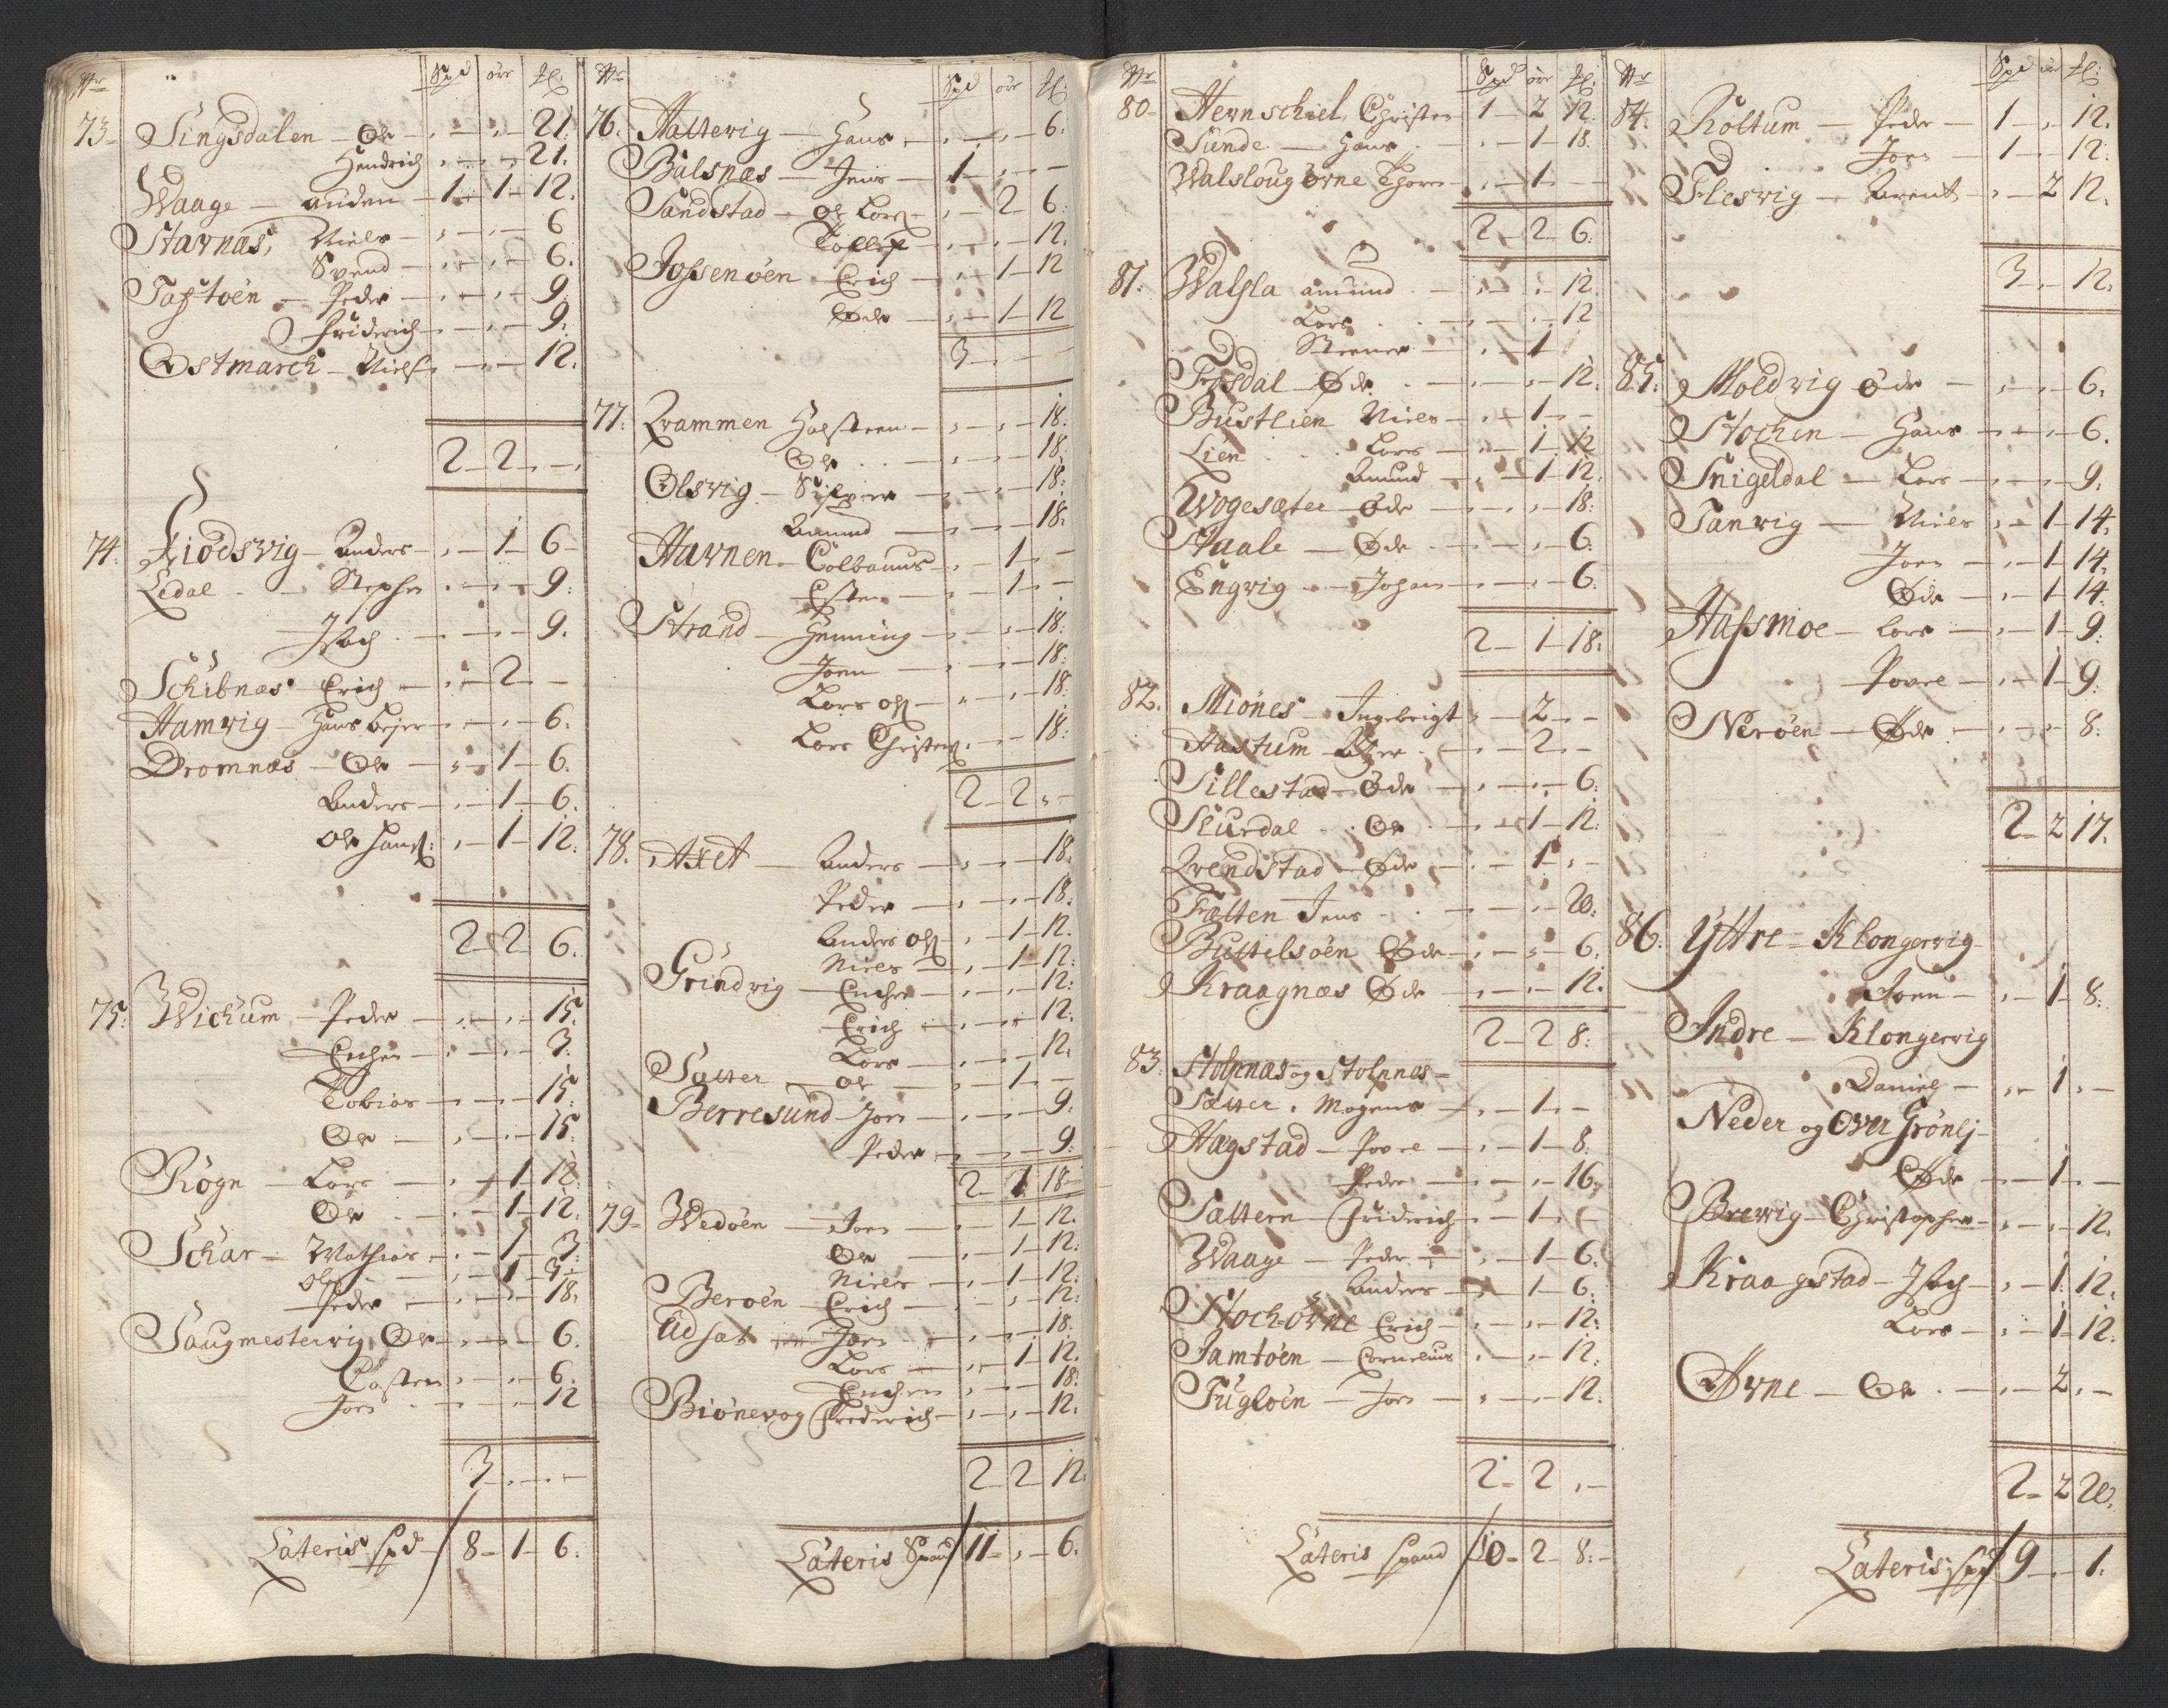 Nr Spd ør M:
73- Singsdalen - Ole - " - " - 21.
Hendrich " - " - 21.
Waage - auden - 1 - 1 - 12.
Stavnæs, Niels - " - " - 6
Svend - " - " - 6.
Tastöen - Peder - " - " - 9.
Friderich - " - " - 9.
Ostmarck - Niels " - " - 12.
2 - 2 - " -
74. Kiödsvig - Anders - " - 1 - 6 -
Ledal - Stephen " - " - 9:
Isach - " - " - 9.
Schibnæs - Erich - " - 2 - -
Hamvig - Hans Bejer - " - " - 6.
Dromnæs - Ole - " - 1 - 6.
Anders - " - 1 - 6.
Ole Hanss: " - 1 - 12.
2 - 2 6.
75. Wickum - Peder - " - " - 15.
Enchen - " - " - 3.
Tobias - " - " - 15.
Ole - " - " - 15.
Rögn - Lars - " - 1 - 12.
Ole - " - 1 - 12.
Schar - Mathias - " - 1 - 3.
Ole - " - 1 - 3 -
Peder - " - " - 18.
Saugmestervig Ole - " - " - 6.
Casten " - " - 6.
Joen " - " - 12
3 - " - -
Lateris spd 8 - 1 - 6.
Nr Spd ør M:
76. Hallevig - Hans - " - " - 6.
Bulsnæs - Jens - 1 - " - -
Sandstad - Ole Lars: - " - 2 - 6.
Tollef - " - " - 12.
Jossenöen - Erich - " - 1 - 12
Øde - " - 1 - 12
3 - - -
77. Qvammen Halsteen - " - " - 18.
Ole - " - " - 18.
Olsvig - Siver - " - " - 18.
Amund - " - " - 18.
Havnen - Colbanus - " - 1 - -
Esten - " - 1 - -
Strand - Henning - " - " - 18.
Joen - " - " - 18.
Lars Ols: - " - " - 18.
Lars Christens: " - " - 18.
2 - 2 " -
78. Axet - Anders - " - " - 18.
Peder - " - " - 18.
Anders Ols: " - 1 - 12.
Niels - " - 1 - 12.
Grindvig - Enchen - " - " - 12:
Erich - " - " - 12.
Lars - " - " - 12.
Sætter - Ole - " - 1 - -
Berresund - Joen - " - " - 9.
Peder - " - " - 9.
2 - 1 18 -
79 - Wedöen - Joen - " - 1 - 12.
Ole - " - 1 - 12.
Niels - " - 1 - 12.
Beröen - Erich - " - " - 12.
Udsat - Joen - " - " - 18.
Lars - " - 1 - 12.
Enchen - " - " - 18.
Biönevog Frederich - " - " - 12.
2 2 - 12.
Lateris Spand 11 - " - 6.
Nr Spd ør M:
80 - Hernschiel, Christen 1 - 2 12.
Sunde - Hans - " - 1 - 18.
Walslougörne Thore - " - 1 - -
2 - 2 - 6.
81. Walsla amund - " - " - 12.
Lars - " - " - 12
Steener - " - 1
Frysdal - Øde - " - " - 12.
Bustlien Niels - " - 1 - -
Lien - Lars - " - 1 - 12
Amund - " - 1 - 12.
Wogesæter - Øde - " - " - 18:
Staale - Øde - " - " - 6.
Engvig - Johan - " - " - 6.
2 - 1 - 18.
82. Miönes - Ingebrigt " - 2 - -
Hastum - - " - 2 - -
Sillestad - Øde - " - " - 6.
Slurdal - Ole - " - 1 - 12.
Qvendstad - Øde - " - 1 - " -
Fælten Jens - " - " - 20.
Buttelsöen Øde - " - " - 6.
Kraagnæs Øde - " - " - 12.
2 - 2 8:
83. Stolpnæs og Stolpnæs -
Sætter. Mogens - " - 1 - -
Hagstad - Povel - " - 1 - 8.
Peder - " - " - 16.
Sættern - Friderich - " - 1 - -
Waage - Peder - " - 1 - 6.
Anders - " - 1 - 6.
Stochörne Erich - " - " - 12.
Jamtöen - Cornelius " - " - 12.
Fuglöen - Joen - " - " - 12.
2 - 2 " -
Lateris spand 10 - 2 - 8. -
Nr Spd ør M:
84. Roltum - Peder - 1 - " - 12.
Joen - 1 - " - 12.
Flesvig - Arent - " - 2 12.
3 - " - 12.
85. Moldvig Øde - " - " - 6.
Stochen - Hans - " - " - 6.
Snigeldal - Lars - " - " - 9.
Tanvig - Niels " - 1 - 14.
Joen - " - 1 - 14.
Øde - " - 1 - 14.
Hassmoe - Lars - " - 1 - 9.
Povel - " - 1 - 9.
Neröen - Øde - " - " - 8.
2 - 2 17.
86. Yttre - Klongervig -
Joen - " - 1 - 8.
Indre - Klongervig
Daniel - " - 1 " -
Neder og Over Grönlj -
Øde - " - 1 " -
Brevig - Christopher - " - " - 12.
Kraagstad - Isach - " - 1. 12.
Lars - " - 1 - 12.
Hvne - Ole - " - 2 " -
2 - 2 20.
Lateris spd 9 - " - 1.